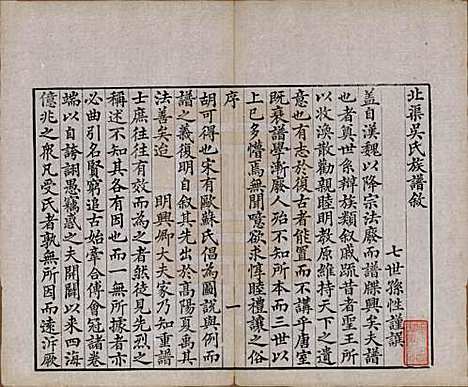 北渠吳氏族譜敘
七世孫性謹譔
蓋自漢魏以降宗法廢而譜牒興矣夫譜
也者奠世系辯族類叙戚疏昔者聖王所
以收渙散勸親睦明教原維持天下之遺
意也有志於復古者能置而不講乎唐室
既衰譜學漸廢人殆不知所本而三世以
上已多懵焉無聞噫欲求惇睦禮讓之俗
序
一
胡可得也宋有歐蘇氏倡為圖說與例而
譜之義復明自叙其先出於高陽夏禹其
法善矣迨 明興卿大夫家乃知重譜
士庶往往有效而為之然徒見先世灼灼
稱述不知其各有因也而一無所據者亦
必曲引名賢窮追古始牽合傅會冠諸卷
端以自誇詡愚竊惑之夫開闢以來四海
億兆之衆凡受氏者孰無所因而遠泝厥